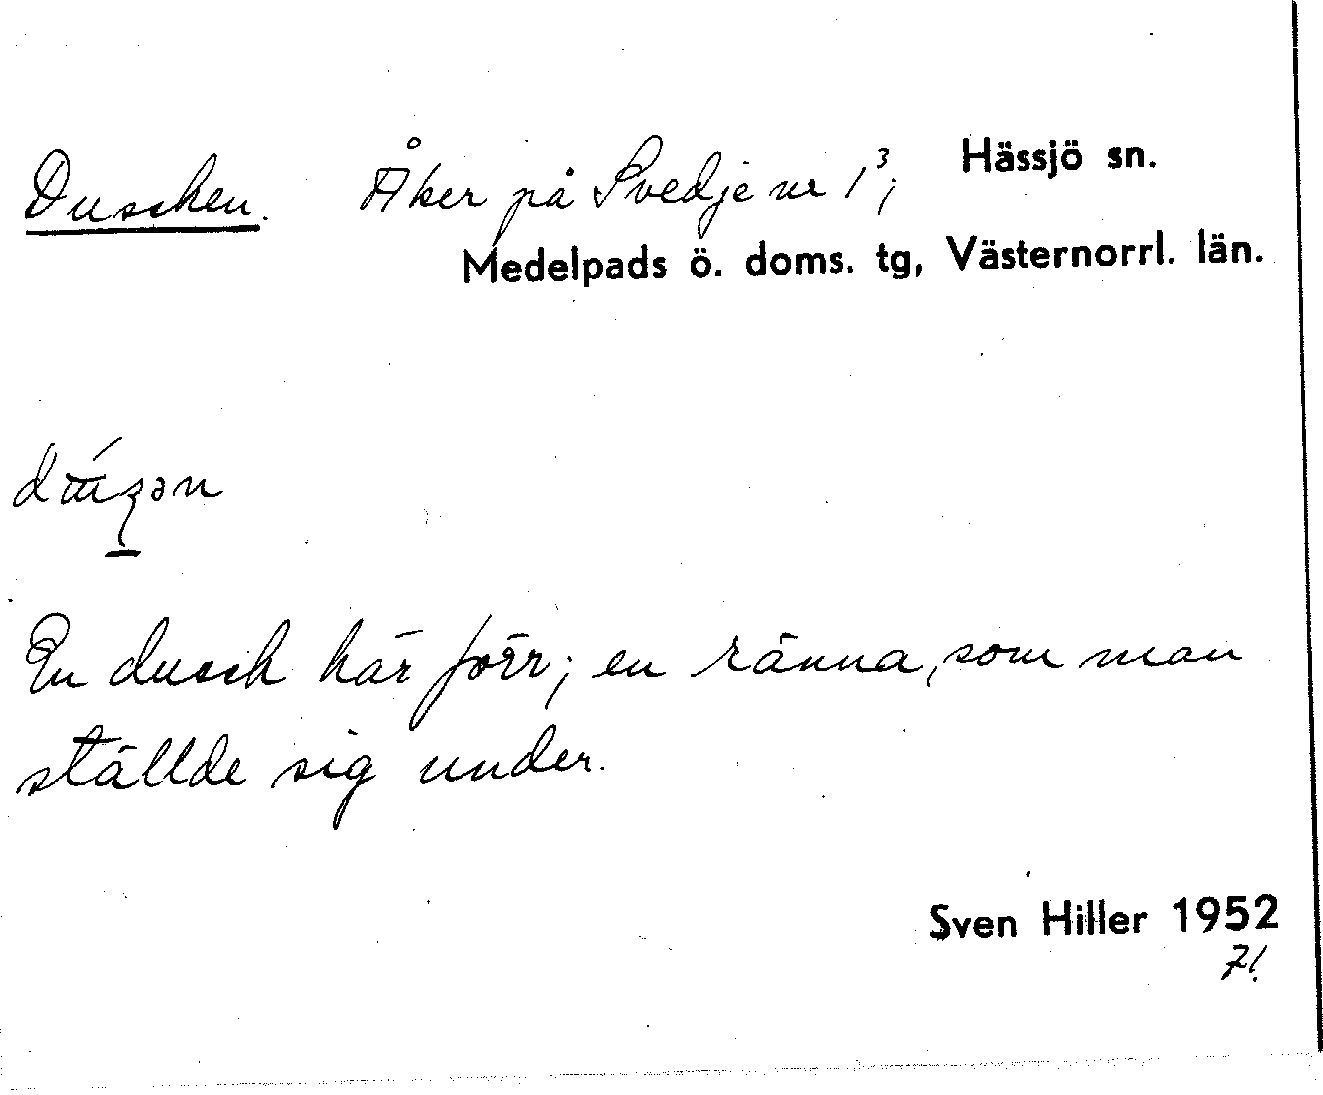 Duschen. Åker på Svedje nr 1³; Hässjö sn.
Medelpads ö. doms. tg, Västernorrl. län.
En dusch här förr; en ränna, som man
ställde sig under.
Sven Hiller 1952
71.